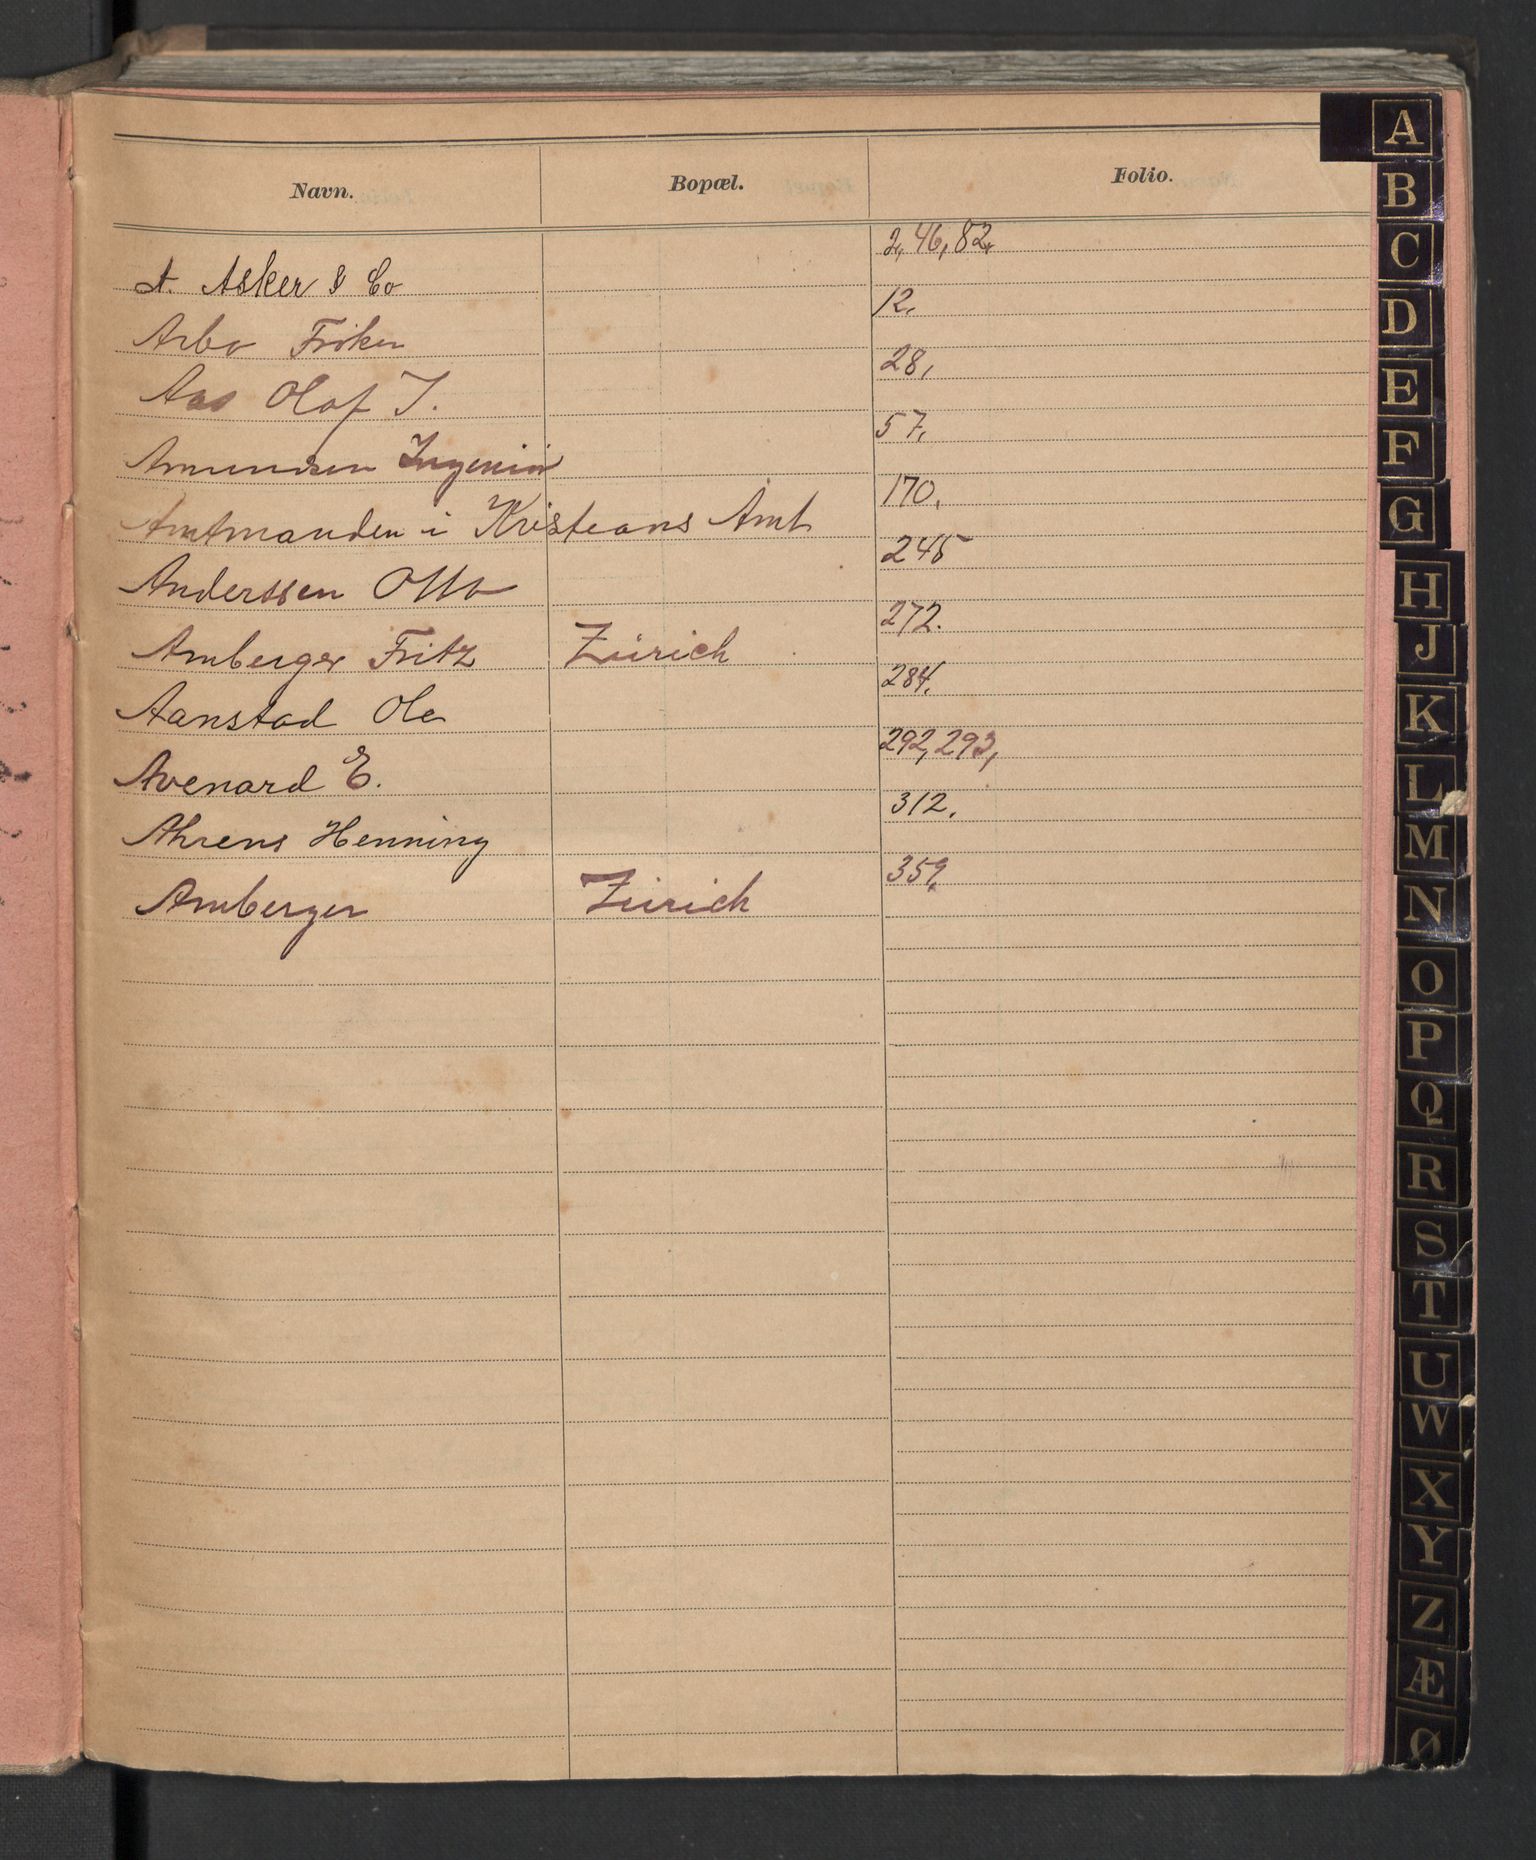 Navn. Bopæl. Folio.
A. Asker & Co 2, 46, 82,
Arbo Frøken 12.
Aas Olaf J. 28,
Amundsen Ingeniør 57,
Amtmanden i Kristians Amt 170.
Anderssen Otto 245
Amberger Fritz Zürich 272.
Aanstad Ole 284.
Avenard E. 292, 293,
Ahrens Henning 312.
Amberger Zürich 359.
A
B
C
D
E
F
G
H
J
K
L
M
N
O
P
Q
R
S
T
U
W
X
Y
Z
Æ
Ø